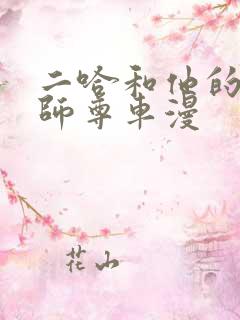 二哈和他的
師尊車漫
花山